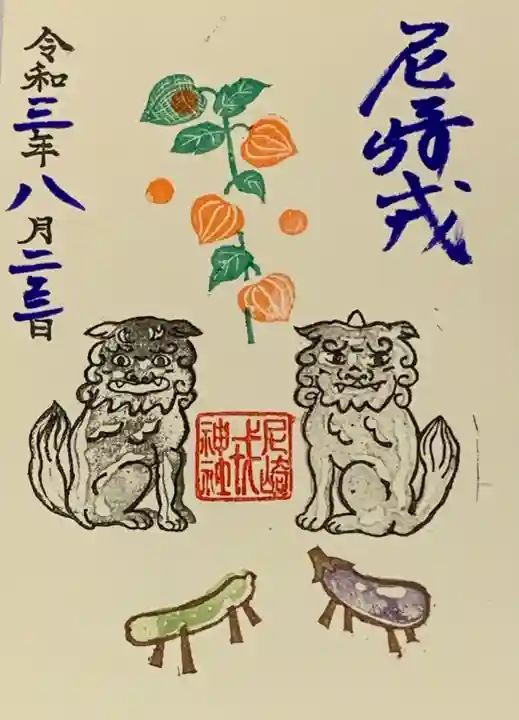 尼崎戎
尼崎
戎
神社
令和三年八月二三日